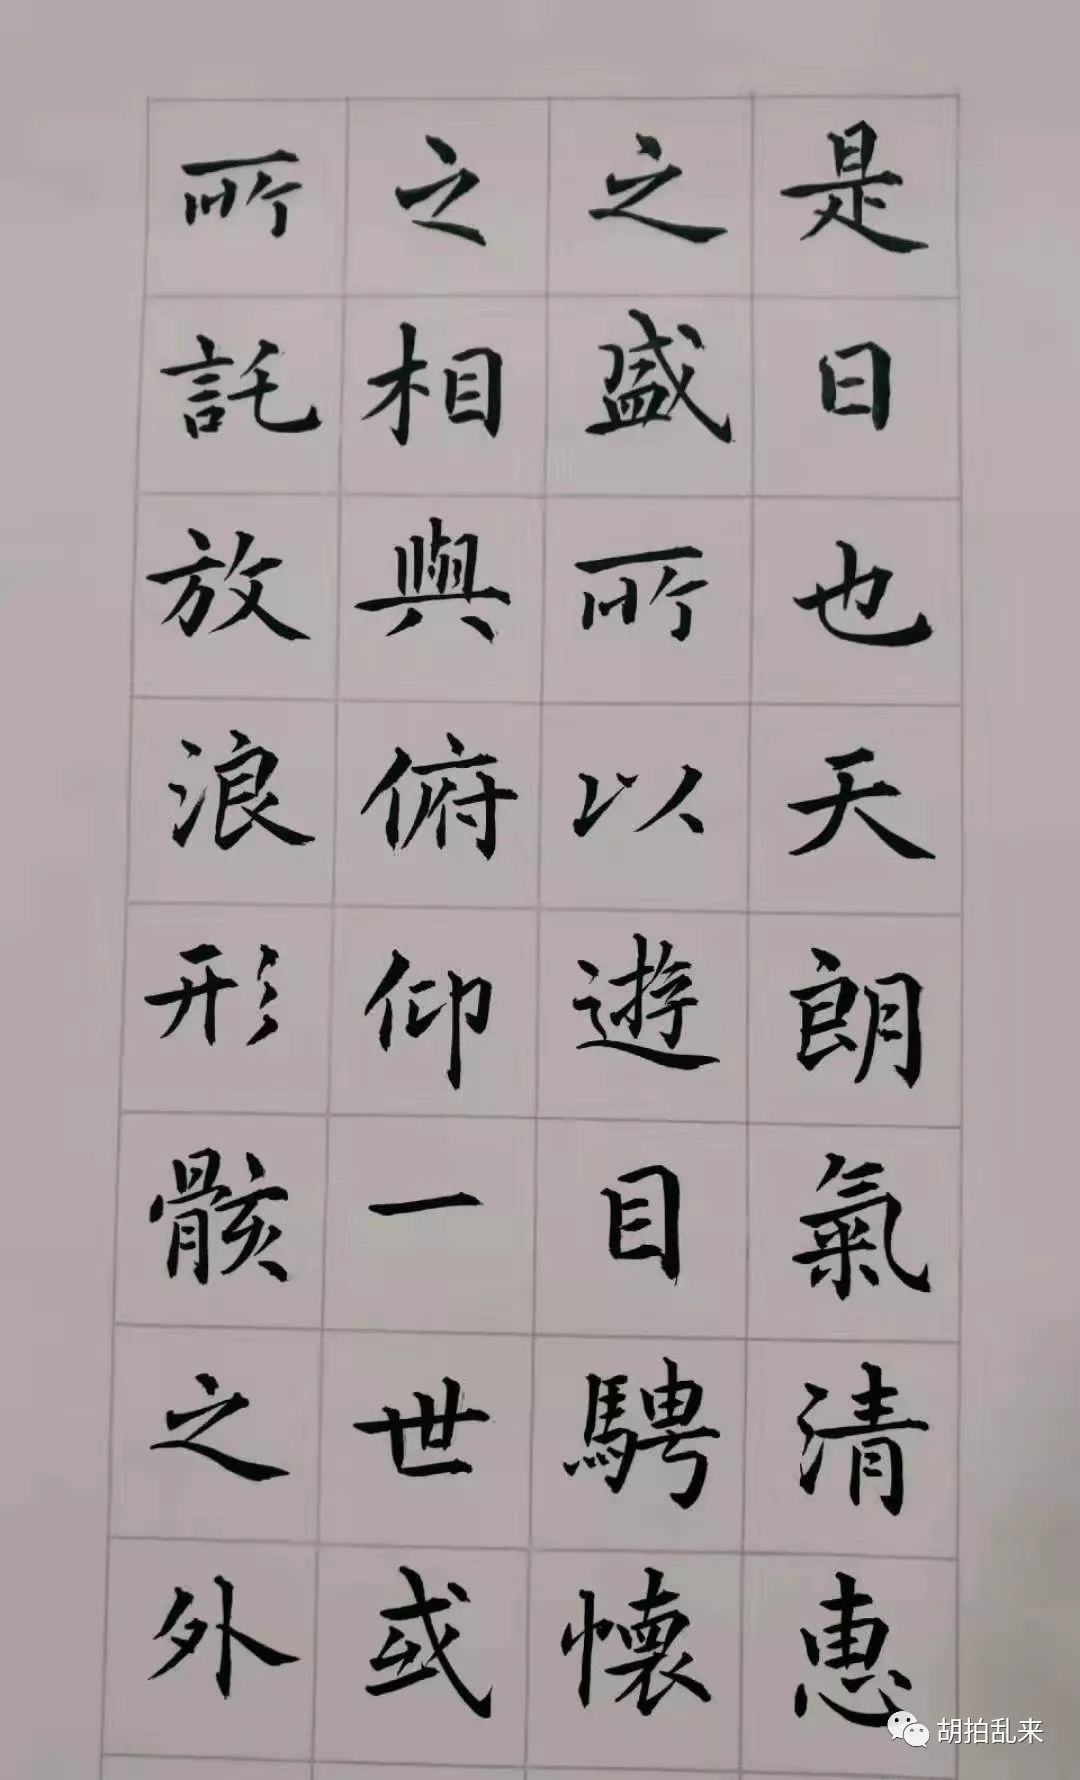 是日也天朗氣清惠
之盛所以遊目騁懷
之相與俯仰一世或
所託放浪形骸之外
胡拍乱来